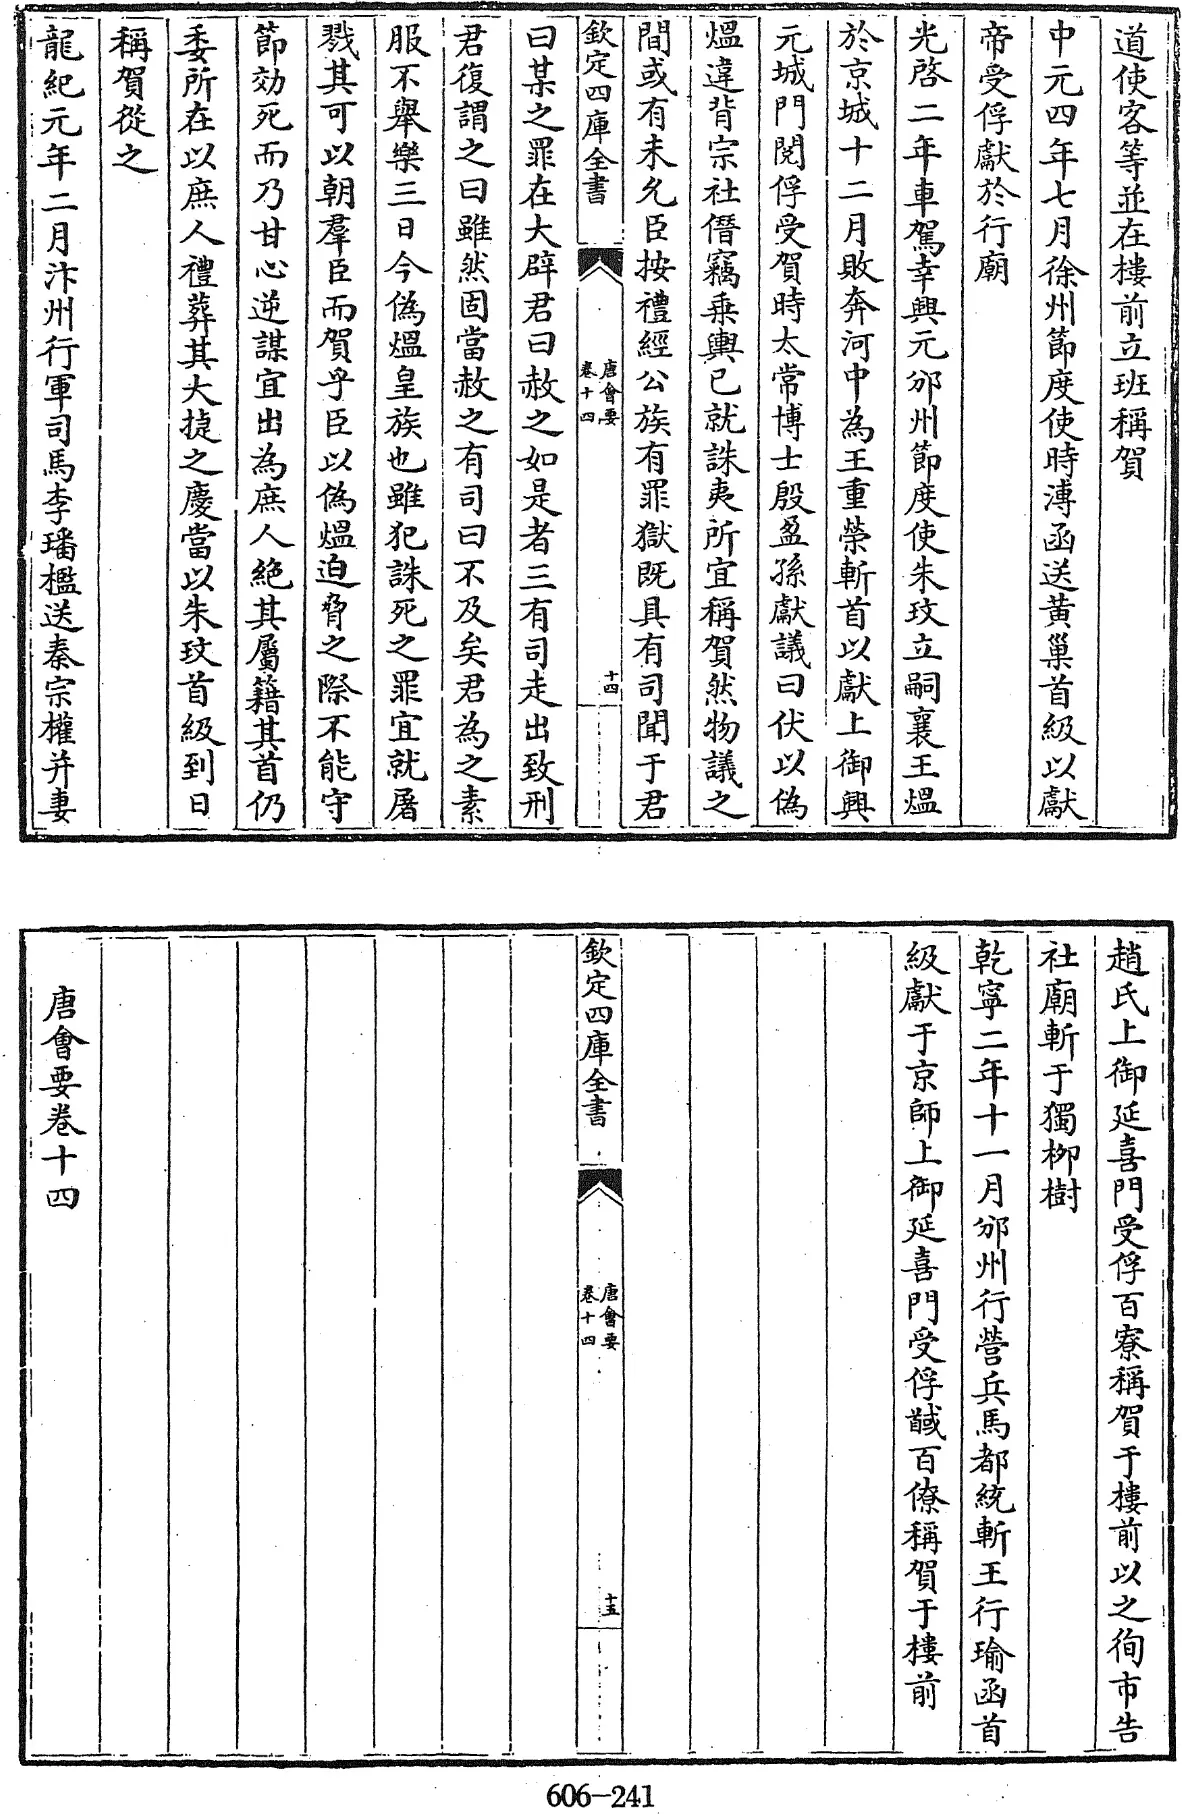 道使客等並在樓前立班稱賀
中元四年七月徐州節度使時溥函送黃巢首級以獻
帝受俘獻於行廟
光啓二年車駕幸興元邠州節度使朱玫立嗣襄王熅
於京城十二月敗奔河中為王重榮斬首以獻上御興
元城門閱俘受賀時太常博士殷盈孫獻議曰伏以偽
熅違背宗社僭竊乗輿已就誅夷所宜稱賀然物議之
間或有未允臣按禮經公族有罪獄既具有司聞于君
欽定四庫全書
唐會要
卷十四
十四
曰某之罪在大辟君曰赦之如是者三有司走出致刑
君復謂之曰雖然固當赦之有司曰不及矣君為之素
服不舉樂三日今偽熅皇族也雖犯誅死之罪宜就屠
戮其可以朝羣臣而賀乎臣以偽熅迫脅之際不能守
節効死而乃甘心逆謀宜出為庶人絶其屬籍其首仍
委所在以庶人禮葬其大捷之慶當以朱玫首級到日
稱賀從之
龍紀元年二月汴州行軍司馬李璠檻送秦宗權并妻
趙氏上御延喜門受俘百寮稱賀于樓前以之徇市告
社廟斬于獨栁樹
乾寧二年十一月邠州行營兵馬都統斬王行瑜函首
級獻于京師上御延喜門受俘馘百僚稱賀于樓前
欽定四庫全書
唐會要
卷十四
十五
唐會要卷十四
606-241